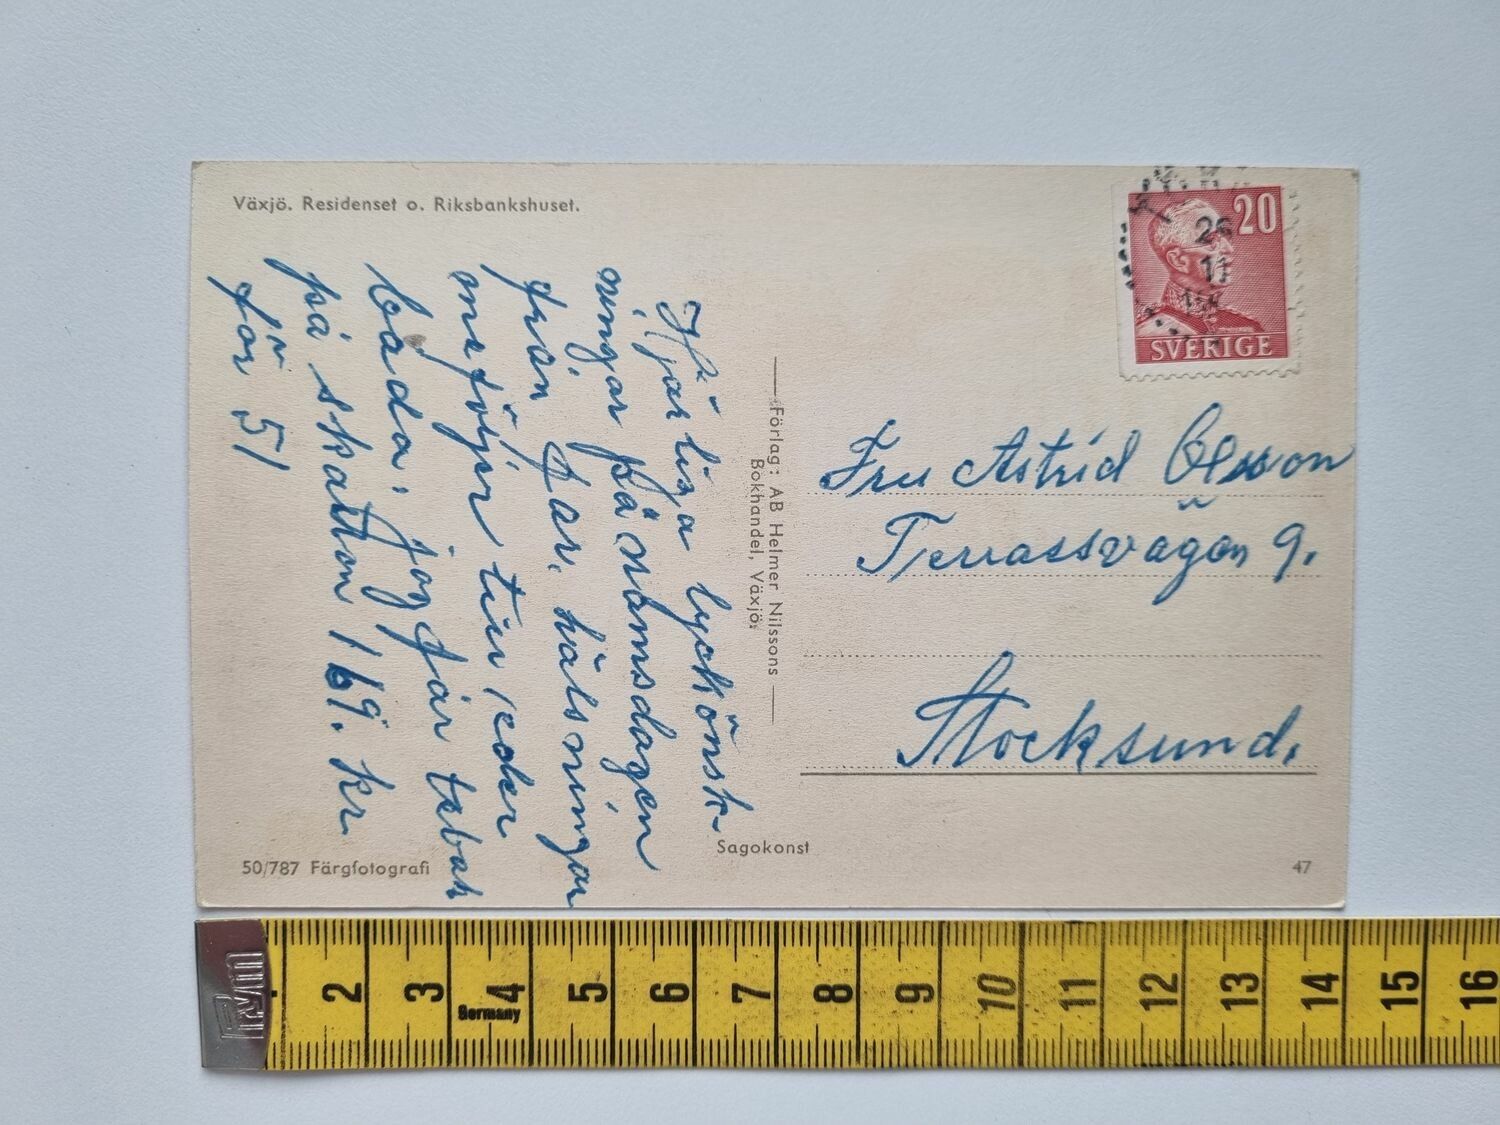 Växjö. Residenset o. Riksbankshuset.
Hjärtliga lyckönsk-
ningar på namnsdagen
från far. hälsningar
medföljer till eder
båda, jag får tebak
på skatten 169. kr
för 51
Förlag: AB Helmer Nilssons
Bokhandel, Växjö.
Sagokonst
50/787 Färgfotografi
20
26
11
SVERIGE
Fru Astrid Olsson
Terrassvägen 9.
Stocksund.
47
2 3 4 5 6 7 8 9 10 11 12 13 14 15 16
Germany